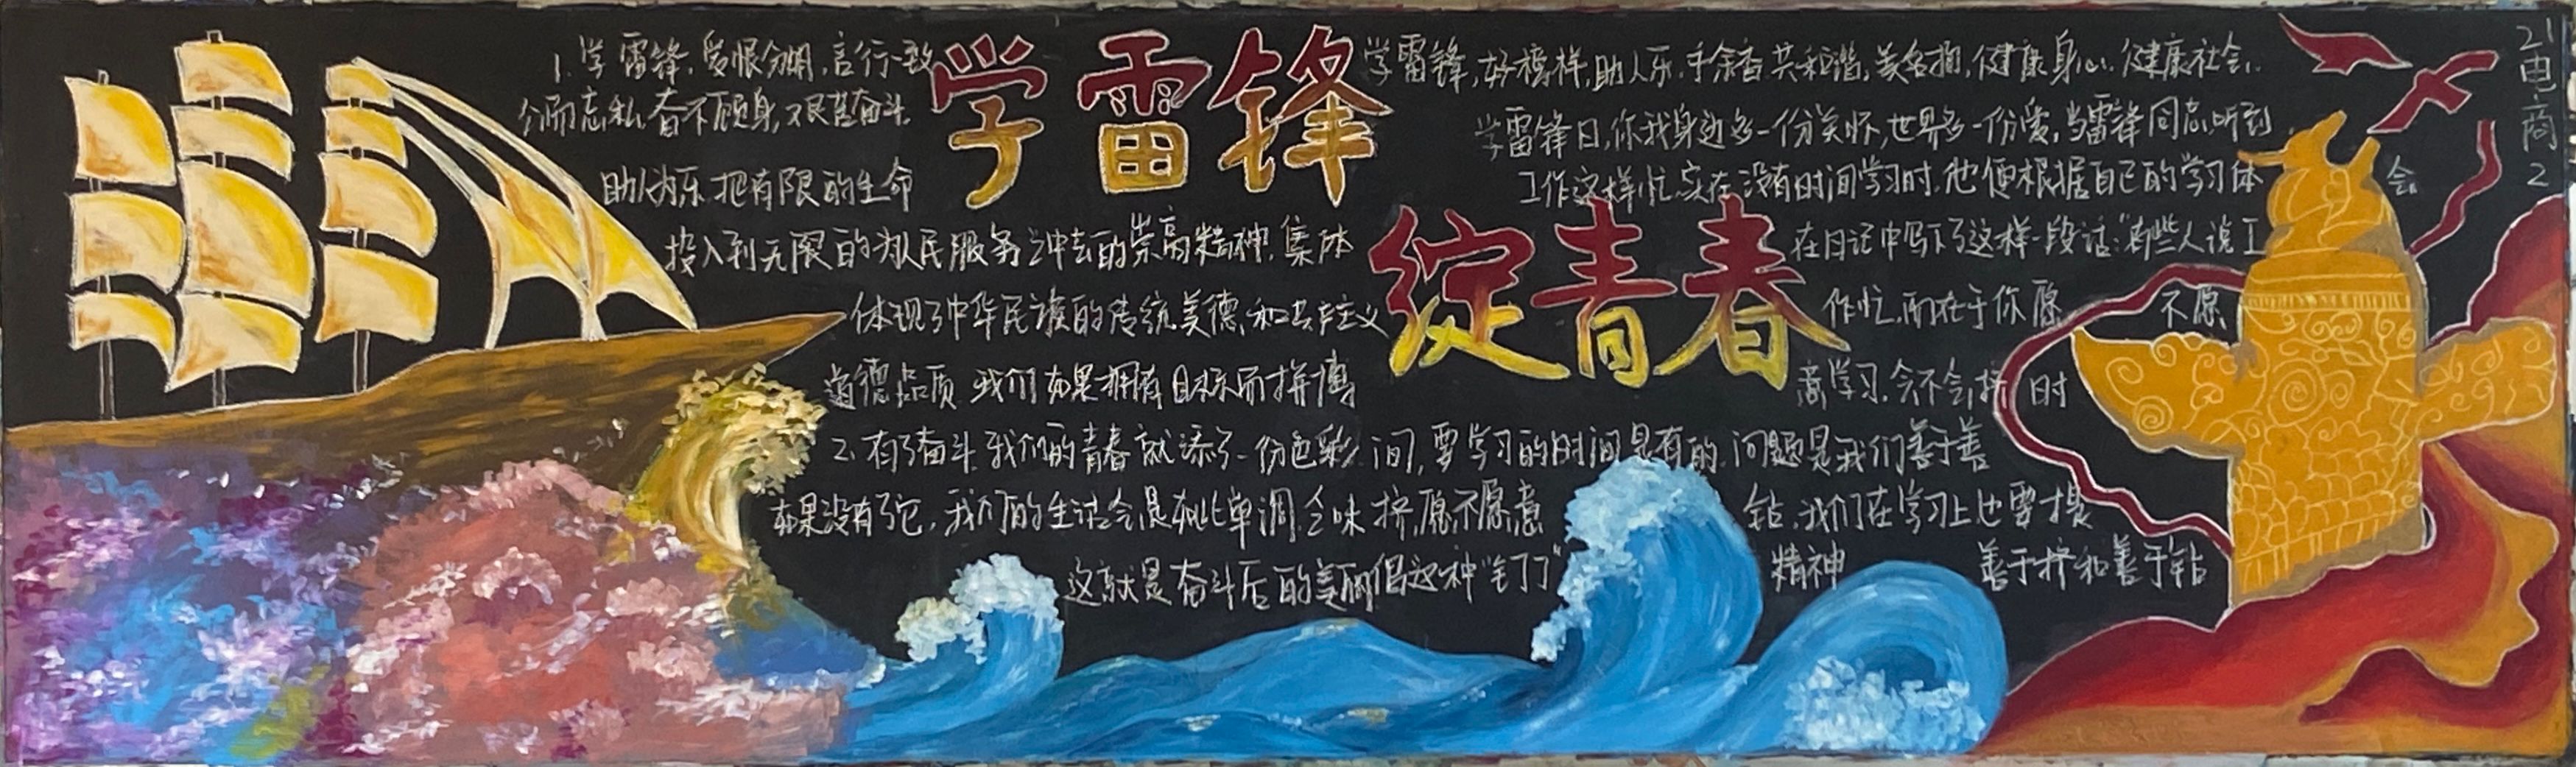 学雷锋
绽青春
21电商2
1.学雷锋,爱恨分明,言行一致
公而忘私,奋不顾身,艰苦奋斗
助人为乐,把有限的生命
投入到无限的为人民服务之中去的崇高精神.集体
体现了中华民族的传统美德、和共产主义
道德品质 我们如果拥有目标而拼搏
2.有了奋斗,我们的青春就添了一份色彩
如果没有了它,我们的生活会是如此单调乏味
这就是奋斗后的美丽
学雷锋,好榜样,助人乐,手余香,共和谐,美名拥,健康身心.健康社会.
学雷锋日,你我身边多一份关怀,世界多一份爱,当雷锋同志听到
工作这样忙,实在没有时间学习时,他便根据自己的学习体会
在日记中写下了这样一段话:"有些人说工
作忙,而在于你愿不愿
学习,会不会挤时
间,要学习的时间是有的,问题是我们善于善
挤,愿不愿意钻,我们在学习上也要提
倡这种"钉子"精神 善于挤和善于钻